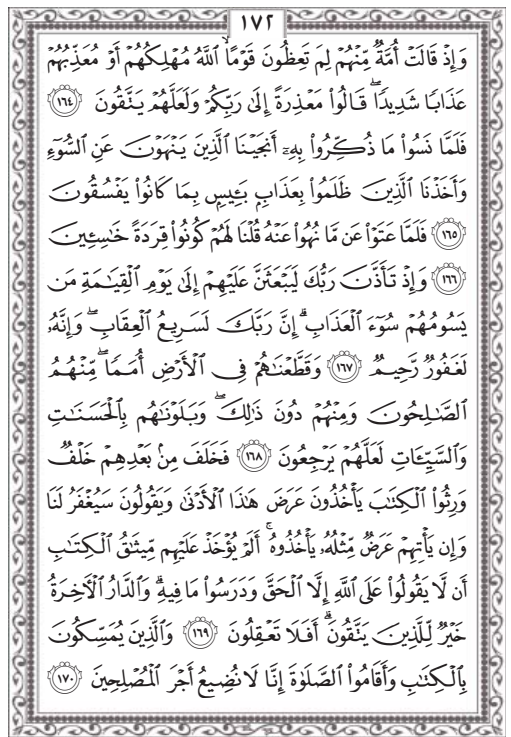 ١٧٢
وَإِذْ قَالَتْ أُمَّةٌ مِّنْهُمْ لِمَ تَعِظُونَ قَوْمًا ٱللَّهُ مُهْلِكُهُمْ أَوْ مُعَذِّبُهُمْ
عَذَابًا شَدِيدًا ۖ قَالُوا۟ مَعْذِرَةً إِلَىٰ رَبِّكُمْ وَلَعَلَّهُمْ يَتَّقُونَ ١٦٤
فَلَمَّا نَسُوا۟ مَا ذُكِّرُوا۟ بِهِۦٓ أَنجَيْنَا ٱلَّذِينَ يَنْهَوْنَ عَنِ ٱلسُّوٓءِ
وَأَخَذْنَا ٱلَّذِينَ ظَلَمُوا۟ بِعَذَابٍۭ بَـِٔيسٍۭ بِمَا كَانُوا۟ يَفْسُقُونَ
١٦٥ فَلَمَّا عَتَوْا۟ عَن مَّا نُهُوا۟ عَنْهُ قُلْنَا لَهُمْ كُونُوا۟ قِرَدَةً خَـٰسِـِٔينَ
١٦٦ وَإِذْ تَأَذَّنَ رَبُّكَ لَيَبْعَثَنَّ عَلَيْهِمْ إِلَىٰ يَوْمِ ٱلْقِيَـٰمَةِ مَن
يَسُومُهُمْ سُوٓءَ ٱلْعَذَابِ ۗ إِنَّ رَبَّكَ لَسَرِيعُ ٱلْعِقَابِ ۖ وَإِنَّهُۥ
لَغَفُورٌ رَّحِيمٌ ١٦٧ وَقَطَّعْنَـٰهُمْ فِى ٱلْأَرْضِ أُمَمًا ۖ مِّنْهُمُ
ٱلصَّـٰلِحُونَ وَمِنْهُمْ دُونَ ذَٰلِكَ ۖ وَبَلَوْنَـٰهُم بِٱلْحَسَنَـٰتِ
وَٱلسَّيِّـَٔاتِ لَعَلَّهُمْ يَرْجِعُونَ ١٦٨ فَخَلَفَ مِنۢ بَعْدِهِمْ خَلْفٌ
وَرِثُوا۟ ٱلْكِتَـٰبَ يَأْخُذُونَ عَرَضَ هَـٰذَا ٱلْأَدْنَىٰ وَيَقُولُونَ سَيُغْفَرُ لَنَا
وَإِن يَأْتِهِمْ عَرَضٌ مِّثْلُهُۥ يَأْخُذُوهُ ۚ أَلَمْ يُؤْخَذْ عَلَيْهِم مِّيثَـٰقُ ٱلْكِتَـٰبِ
أَن لَّا يَقُولُوا۟ عَلَى ٱللَّهِ إِلَّا ٱلْحَقَّ وَدَرَسُوا۟ مَا فِيهِ ۗ وَٱلدَّارُ ٱلْـَٔاخِرَةُ
خَيْرٌ لِّلَّذِينَ يَتَّقُونَ ۗ أَفَلَا تَعْقِلُونَ ١٦٩ وَٱلَّذِينَ يُمَسِّكُونَ
بِٱلْكِتَـٰبِ وَأَقَامُوا۟ ٱلصَّلَوٰةَ إِنَّا لَا نُضِيعُ أَجْرَ ٱلْمُصْلِحِينَ ١٧٠